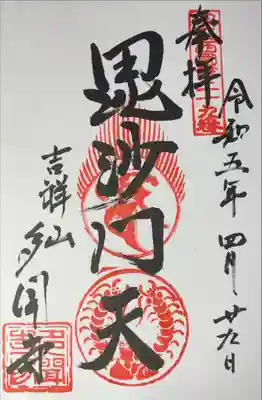 奉拝
令和五年四月廿九日
毘沙門天
吉祥山
多聞寺